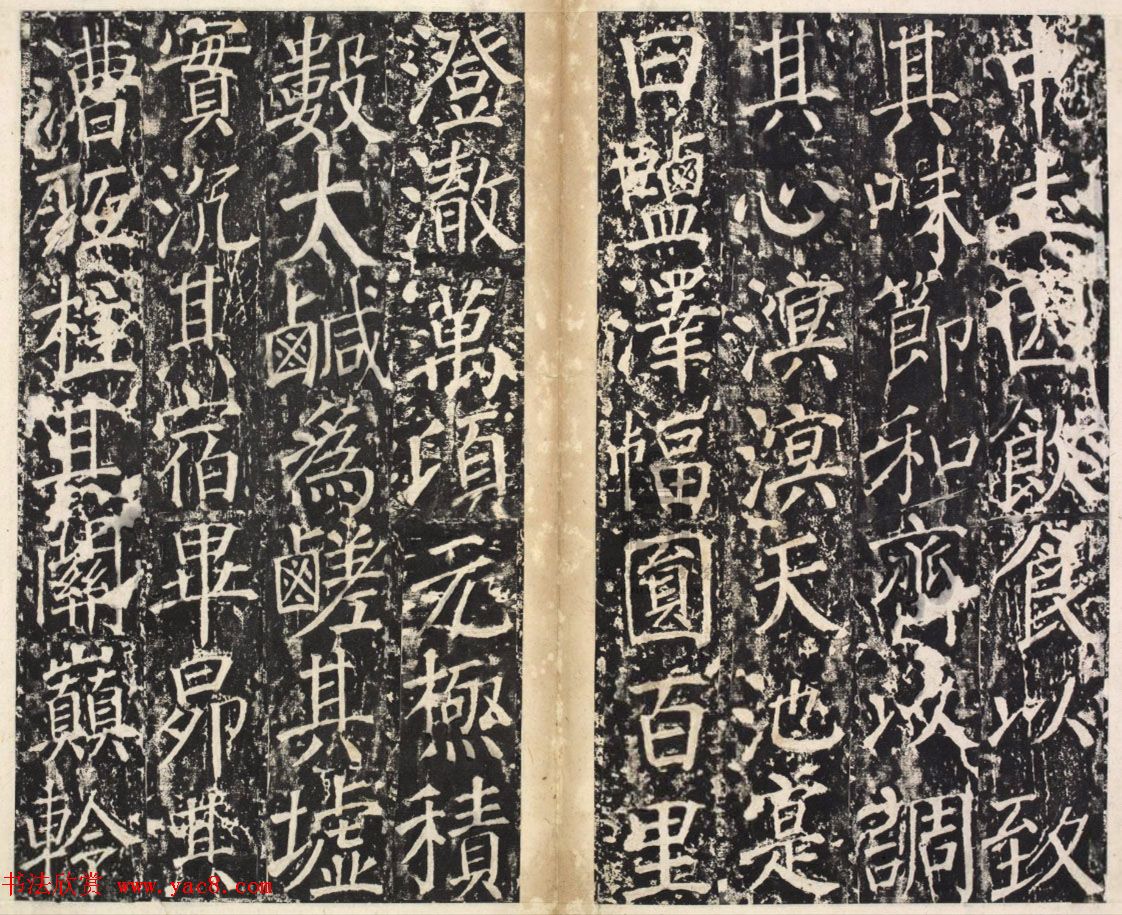 中因飲食以致
其味節和齊以調
其心溟溟天池寔
曰鹽澤幅圓百里
澄澈萬頃元極積
數大鹹為鹺其墟
實沉其宿畢昴其
漕砥柱其關巔軨
书法欣赏 www.yac8.com